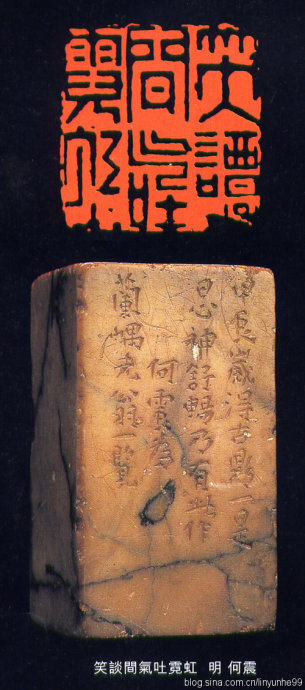 笑譚
間气吐
霓虹
甲辰歲得古鼎一是
日心神舒暢乃有此作
何震為
蘭嵎老翁一覽
笑談間氣吐霓虹 明 何震
blog.sina.com.cn/linyunhe99